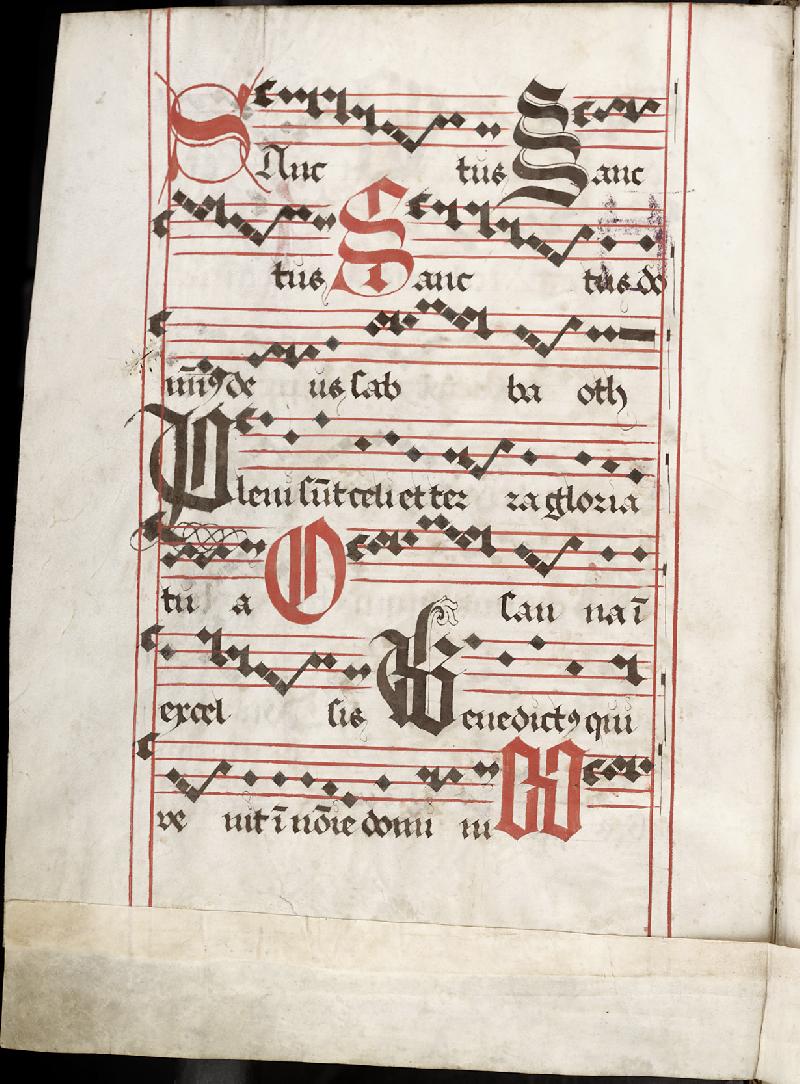 SAnc tus Sanc
tus Sanc tus do
minꝰ de us sab ba oth
Pleni sūt celi et ter ra gloria
tu a O san na ī
excel sis Benedictꝰ qui
ve nit ī nōīe domi ni O